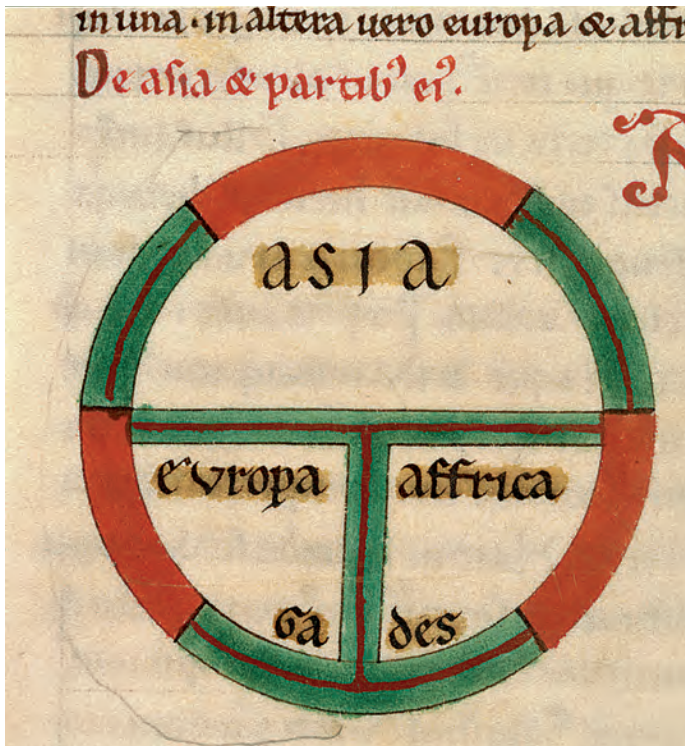 in una · in altera uero europa & affri
De asia & partib⁹ ei⁹.
asia
europa affrica
Ga des